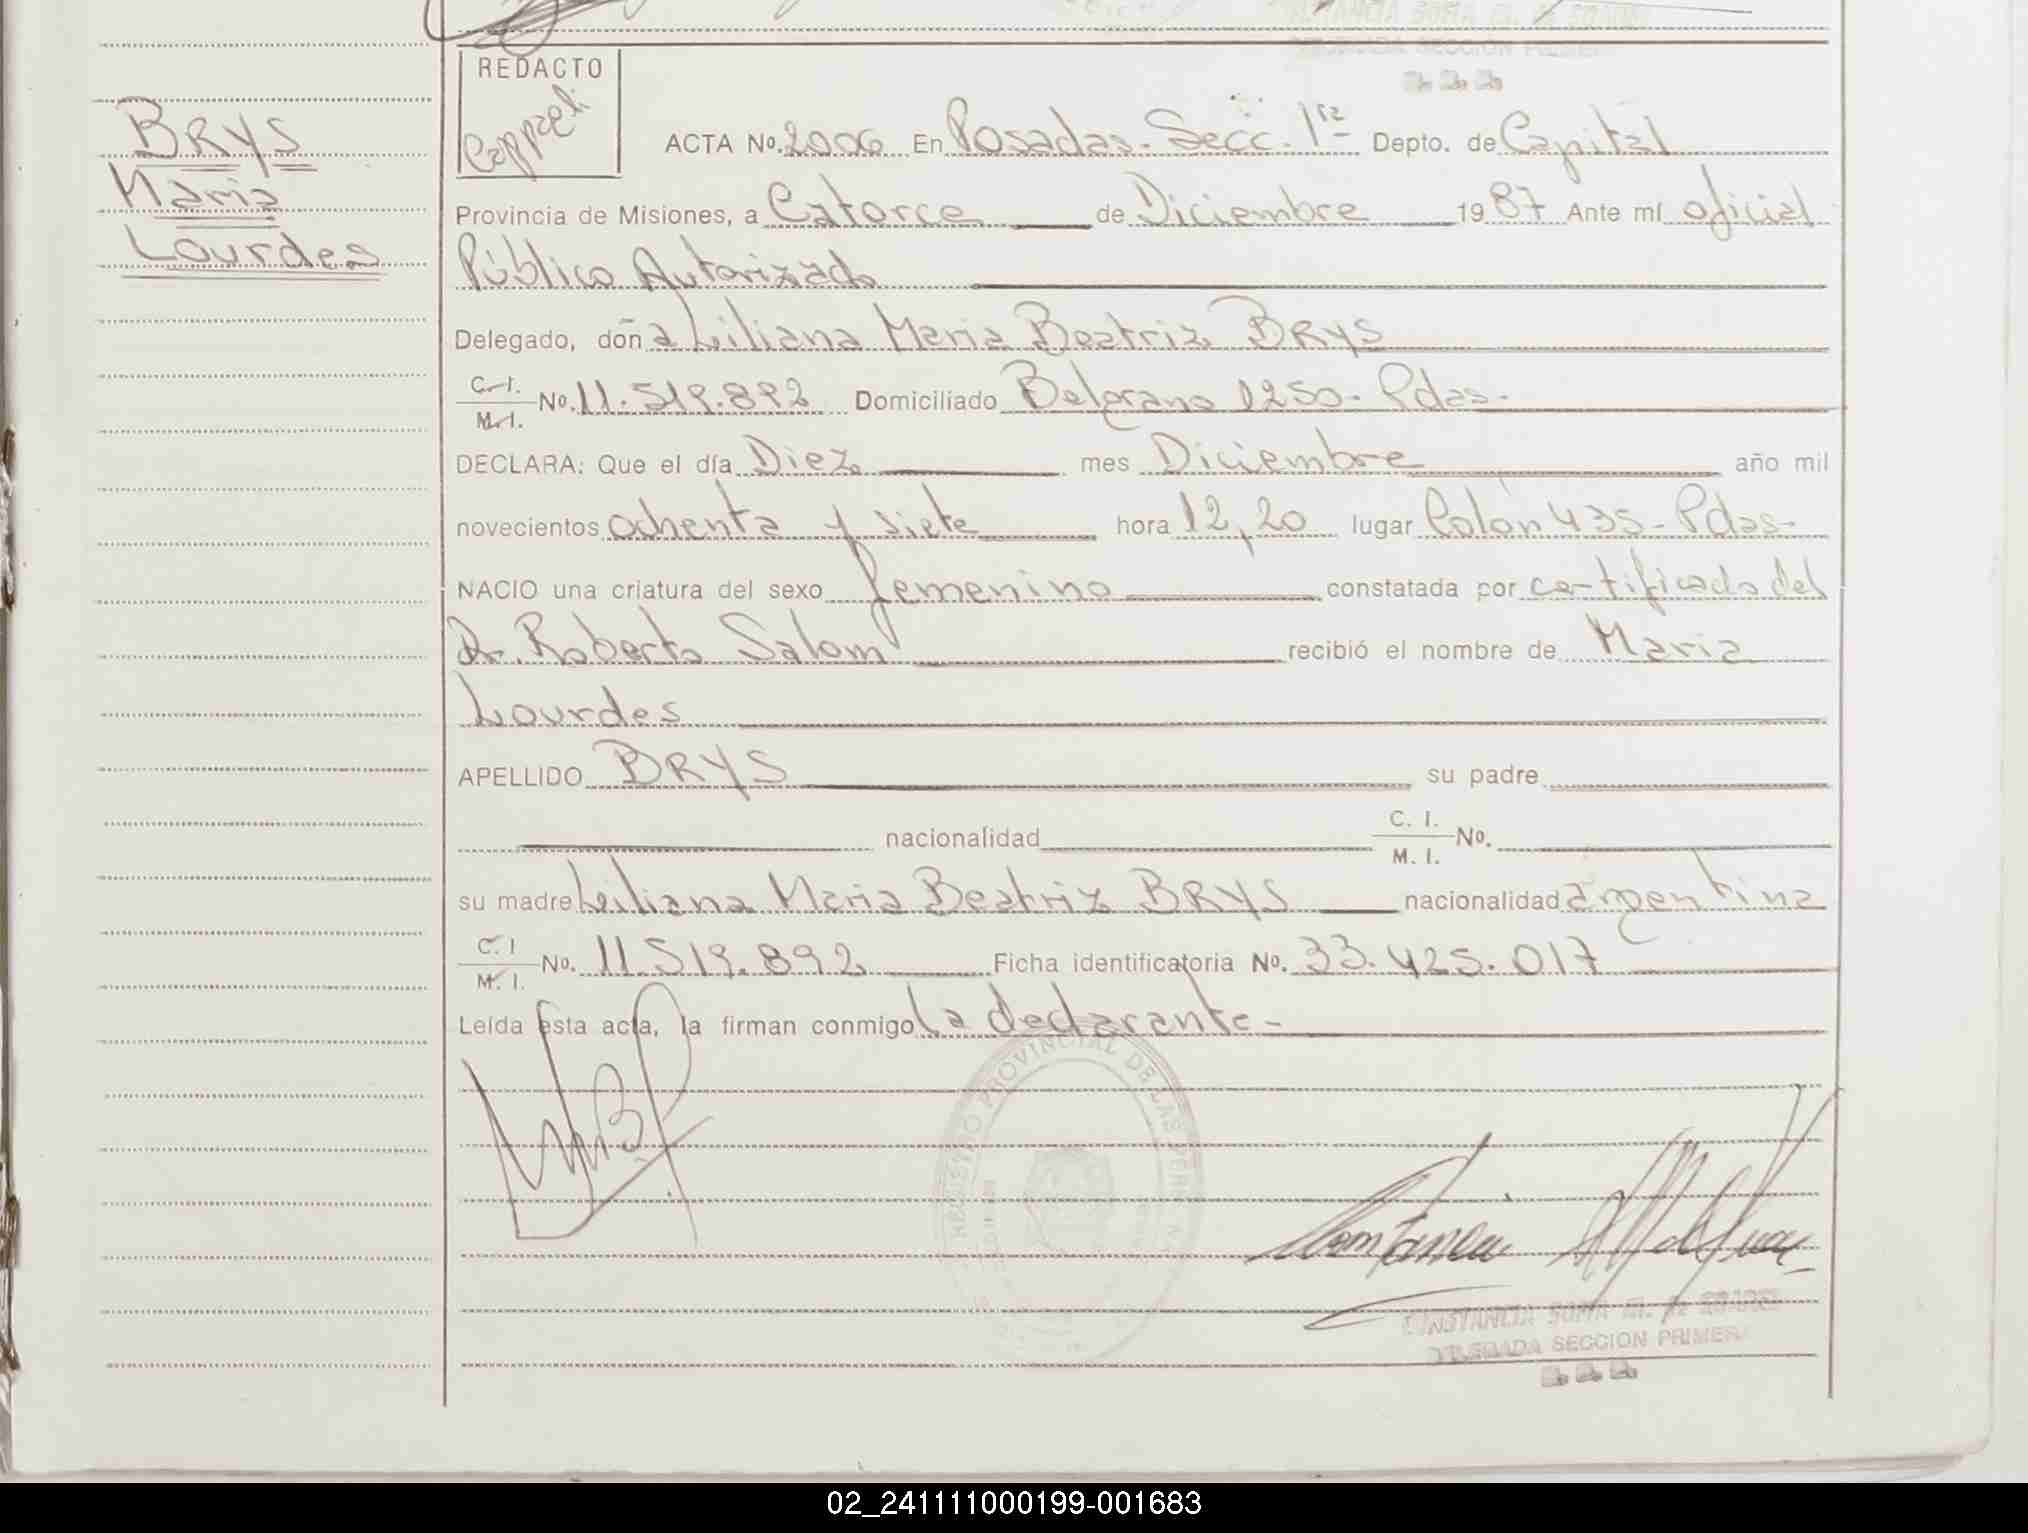 REDACTO
Cappeli
BRYS
Maria
Lourdes
ACTA No. 2006 En Posadas. Secc. 1ra Depto. de Capital
Provincia de Misiones, a Catorce de Diciembre 1987 Ante mí oficial
Público Autorizado
Delegado, doña Liliana Maria Beatriz BRYS
C. I. M. I. No. 11.519.892 Domiciliado Belgrano 1250. Pdas.
DECLARA: Que el día Diez mes Diciembre año mil
novecientos ochenta y siete hora 12,20 lugar Colón 435- Pdas-
NACIO una criatura del sexo femenino constatada por certificado del
Dr. Roberto Salom recibió el nombre de Maria
Lourdes
APELLIDO BRYS su padre
nacionalidad C. I. M. I. No.
su madre Liliana Maria Beatriz BRYS nacionalidad argentina
C. I M. I. No. 11.519.892 Ficha identificatoria No. 33.425.017
Leída esta acta, la firman conmigo la declarante-
REGISTRO PROVINCIAL DE LAS PERS
CONSTANCIA SOFIA M. de
DELEGADA SECCION PRIMERA
02_241111000199-001683